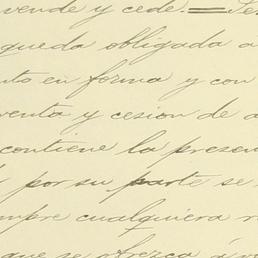 vende y cede.=
queda obligada a
en forma y con
venta y cesion de
contiene la presen
por su parte se
mpre cualquiera
que se ofrezca